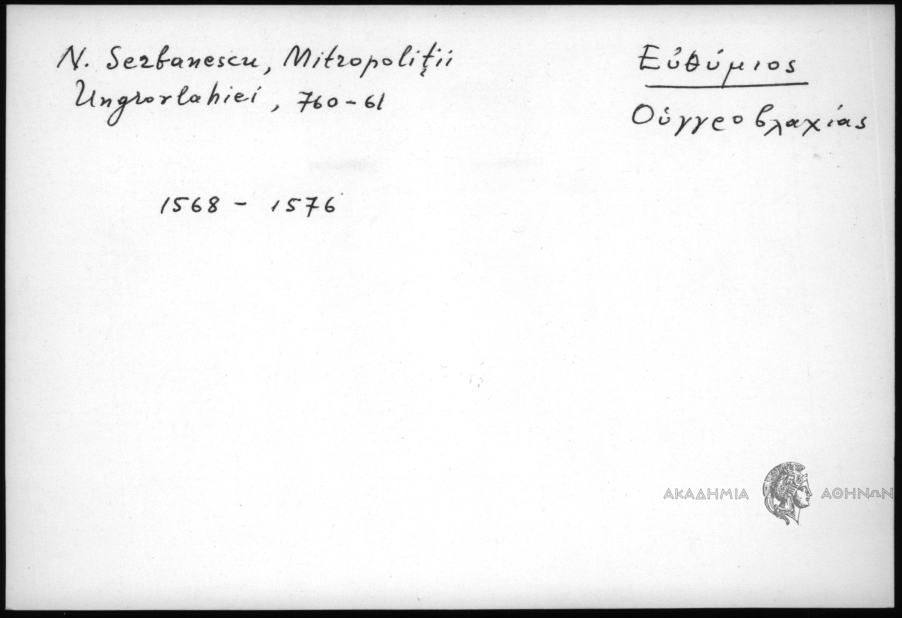 N. Serbanescu, Mitropoliţii
Ungrovlahiei, 760-61
Εὐθύμιος
Οὑγγροβλαχίας
1568 - 1576
ΑΚΑΔΗΜΙΑ ΑΘΗΝΩΝ